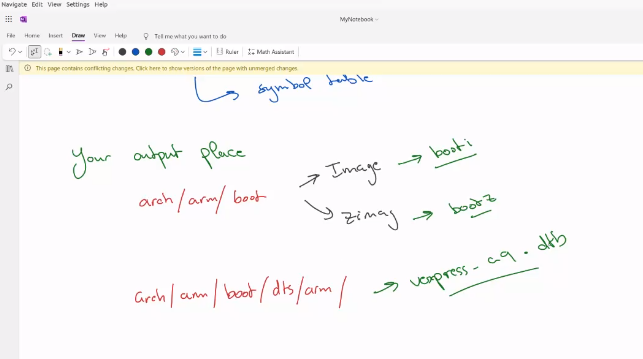 Navigate Edit View Settings Help
MyNotebook
File Home Insert Draw View Help Tell me what you want to do
Ruler Math Assistant
This page contains conflicting changes. Click here to show versions of the page with unmerged changes.
symbol table
Your output place
Image → booti
arch/arm/boot
zimag → bootz
arch/arm/boot/dts/arm/ → vexpress-a9.dtb